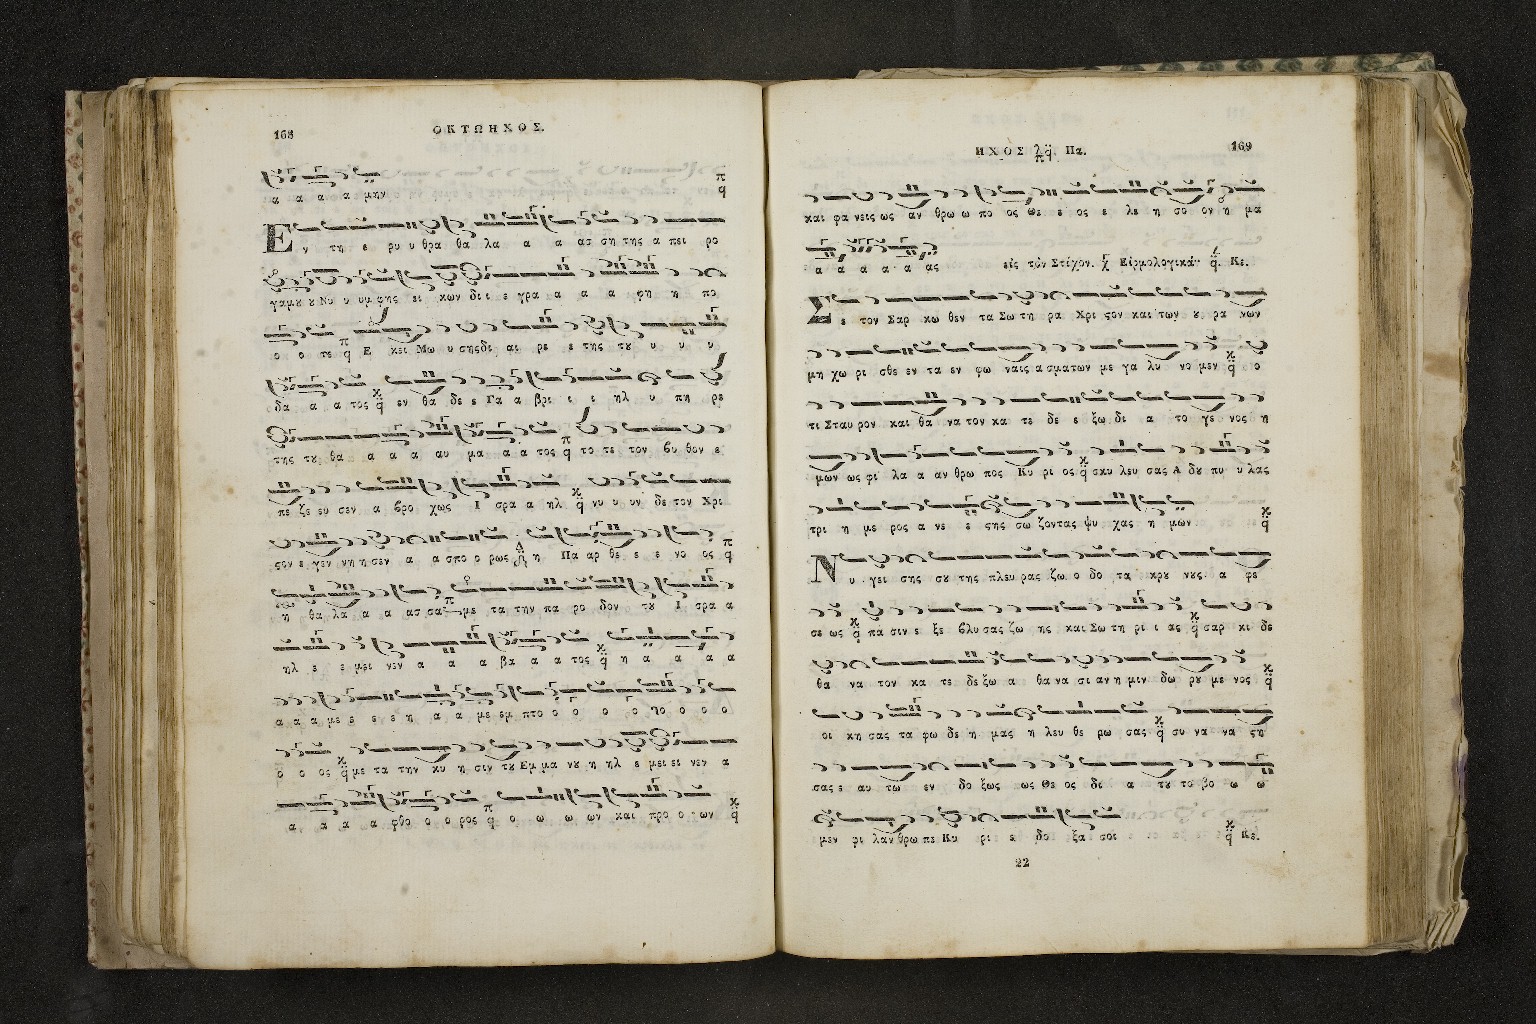 168
ΟΚΤΩΗΧΟΣ.
α α α α μην
Ε ν τη ε ρυ υ θρα θα λα α α ασ ση της α πει ρο
γαμου ου Νυ υ υμ φης ει κων δι ι ε γρα α α α φη η πο
ο ο τε Ε κει Μω υ σης δι αι ρε ε της του υ υ υ
δα α α τος εν θα δε ε Γα α βρι ι ι ηλ υ πη ρε
της του θα α α α αυ μα α α τος το τε τον βυ θον ε
πε ζε ευ σεν α βρο χως Ι σρα α ηλ νυ υ υν δε τον Χρι
ςον ε γεν νη η σεν α α σπο ο ρως η Πα αρ θε ε ε ε νο ος
η θα λα α α ασ σα με τα την πα ρο δον του Ι σρα α
ηλ ε ε μει νεν α α α βα α α τος η α α α α
α α α με ε ε ε η α α με εμ πτο ο ο ο ο ο ο ο
ο ο ος με τα την κυ η σιν του Εμ μα νου η ηλ ε μει ει νεν α
α α α α φθο ο ο ρος ο ω ω ων και προ ο ων
ΗΧΟΣ Πα.
169
και φα νεις ως αν θρω ω πο ος Θε ε ος ε λε η σο ον η μα
α α α α α ας εἰς τὸν Στίχον. Εἱρμολογικά· Κε.
Σ ε τον Σαρ κω θεν τα Σω τη ρα Χρι ςον και των ου ρα νων
μη χω ρι σθε εν τα εν φω ναις α σματων με γα λυ νο μεν ο
τι Σταυ ρον και θα να τον κα τε δε ε ξω δι α το γε νος η
μων ως φι λα α αν θρω πος Κυ ρι ος σκυ λευ σας Α δου πυ υ λας
τρι η με ρος α νε ε ςης σω ζοντας ψυ χας η μων
Ν υ γει σης σου της πλευ ρας ζω ο δο τα κρου νους α φε
σε ως πα σιν ε ξε βλυ σας ζω ης και Σω τη ρι ι ας σαρ κι δε
θα να τον κα τε δε ξω α θα να σι αν η μιν δω ρου με νος
οι κη σας τα φω δε η μας η λευ θε ρω σας συ να να ςη
σας ε αυ τω εν δο ξως ως Θε ος δι α του το βο ω ω
μεν φι λαν θρω πε Κυ ρι ε δο ξα σοι Κε.
22